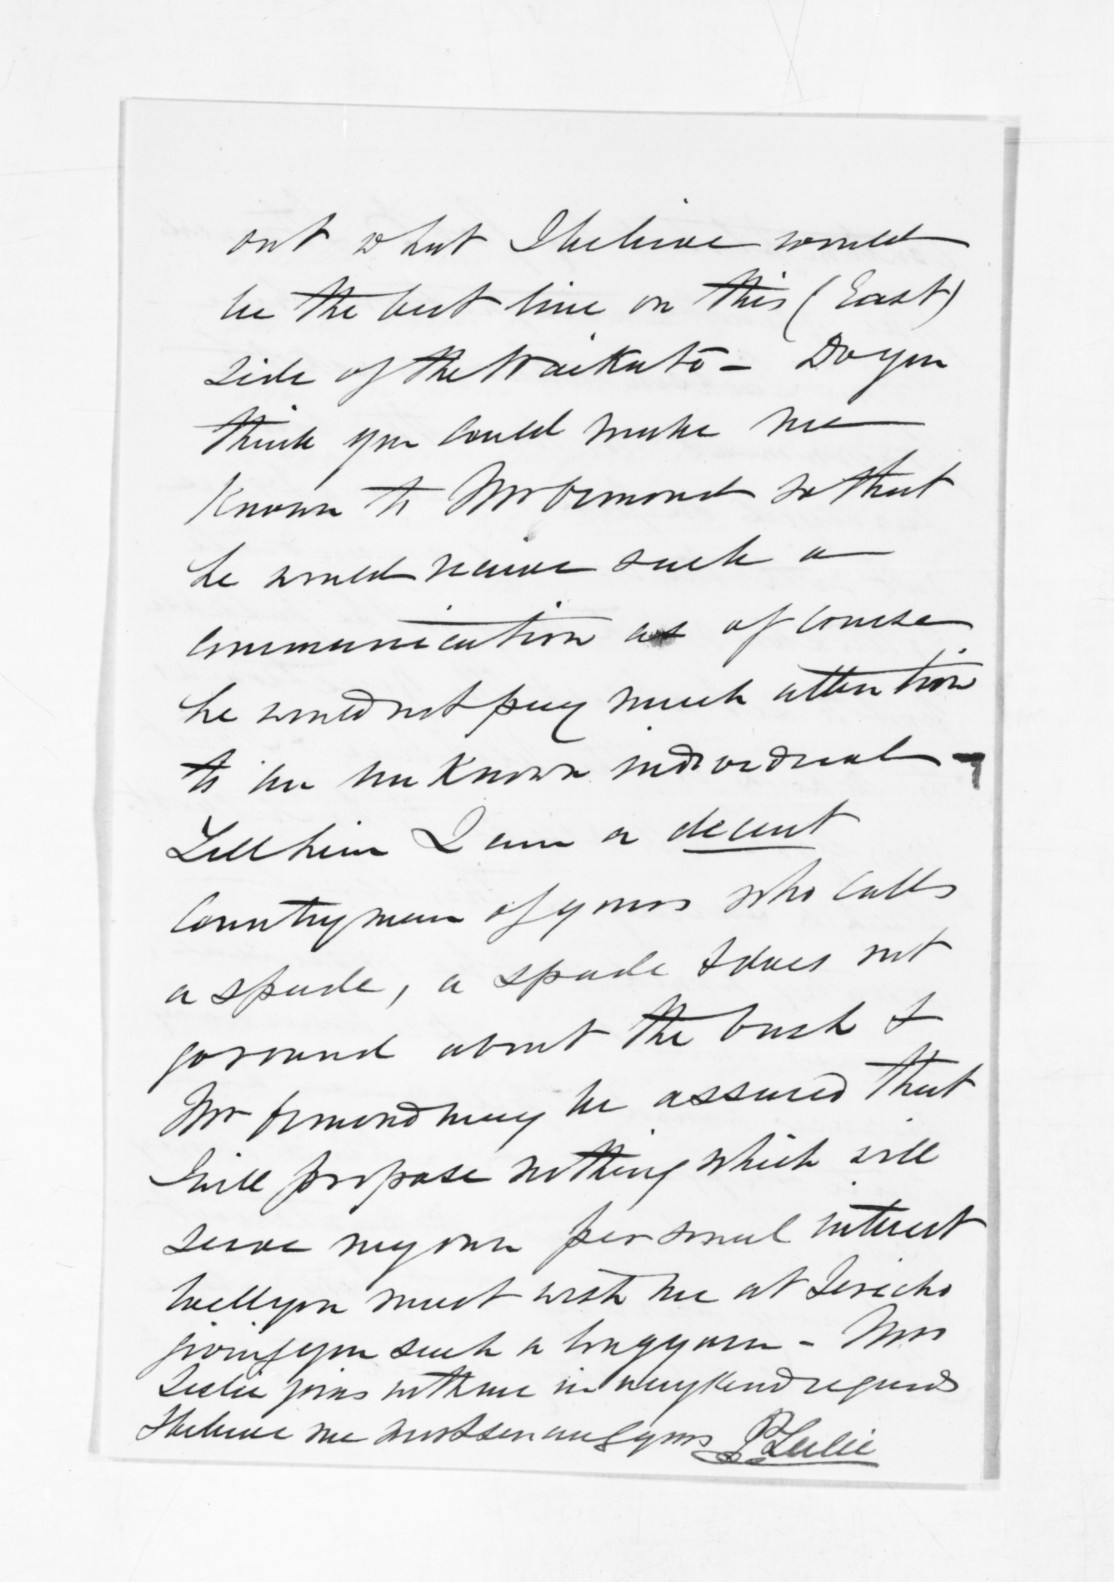 out what I believe would
be the best line on this (East)
side of the Waikato - Do you
think you could make me
known to Mr Ormond so that
he would receive such a
communication as of course
he would not pay much attention
to an unknown individual -
Tell him I am a decent
Countryman of yours who calls
a spade, a spade & does not
go round about the bush &
Mr Ormond may be assured that
I will propose nothing which will
serve my own personal interest
Well you must wish me at Jericho
giving you such a long yarn - Mrs
Leslie joins with me in very kind regards
& believe me most sincerely yours P Leslie